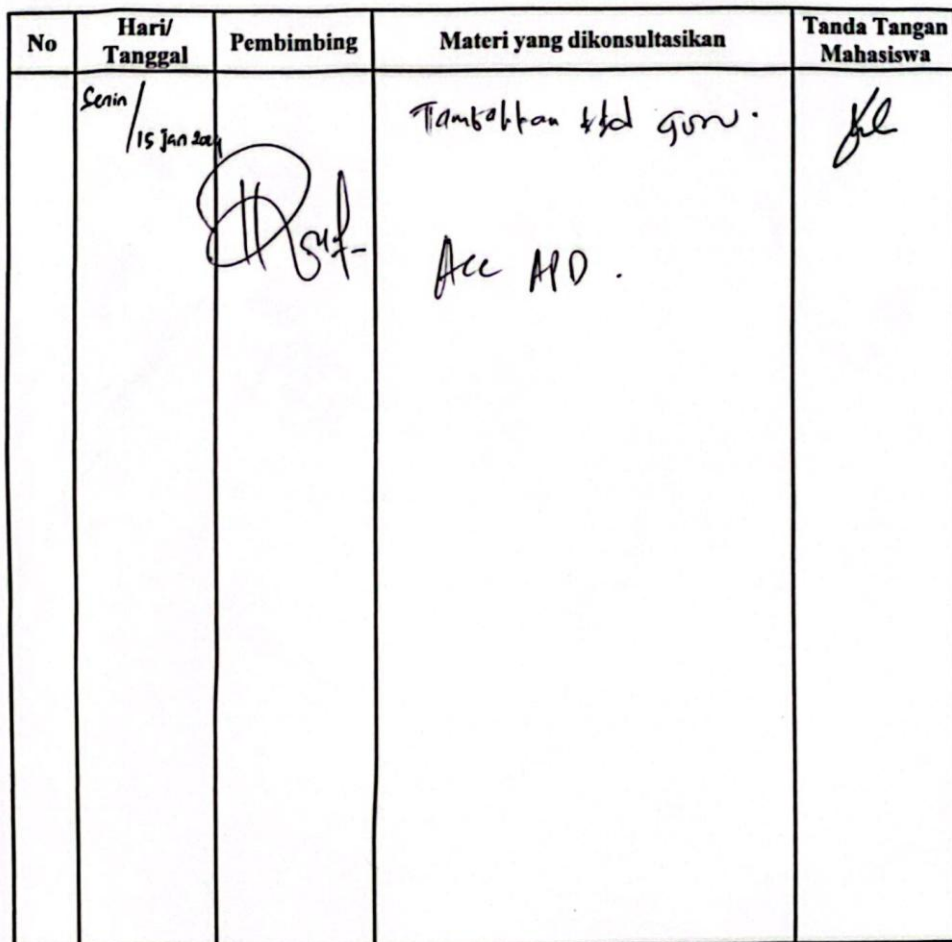 No Hari/ Tanggal Pembimbing Materi yang dikonsultasikan Tanda Tangan Mahasiswa
Senin/
15 Jan 2024
Tambahkan ttd guru.
Acc APD.